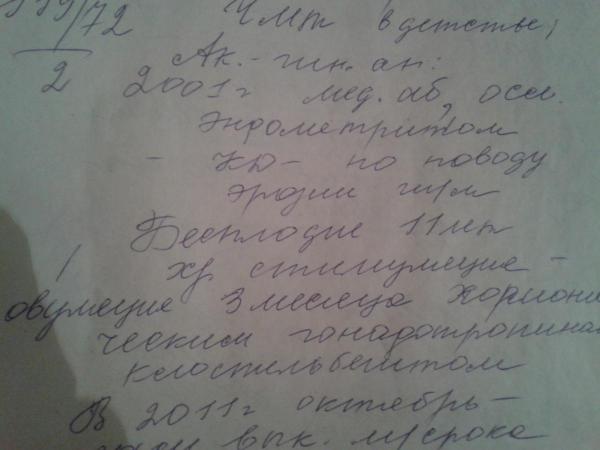 139/72
2
ЧМТ в детстве,
Ак.-гин. ан:
2001г мед. аб, осл.
эндометритом
- КЮ - по поводу
эрозии ш/м
Бесплодие 11 лет
хр стимуляция -
овуляция 3 месяца хориони
ческим гонадотропином
клостильбегитом
В 2011г октябрь -
вык. м/срока